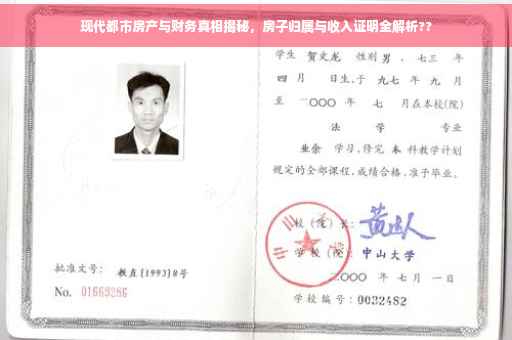 现代都市房产与财务真相揭秘，房子归属与收入证明全解析??
学生 贺文龙 性别 男 、七三 年
四 月 日生,于 九七 年 九 月
至 二〇〇〇 年 七 月在本校(院)
法 学 专业
业余 学习,修完 本 科教学计划
规定的全部课程,成绩合格,准予毕业。
校(院)长:
中山大学
学校(院): 中山大学
批准文号: 教直[1993]8号
二〇〇〇 年 七 月 一 日
No. 01669286
学校编号: 0032482